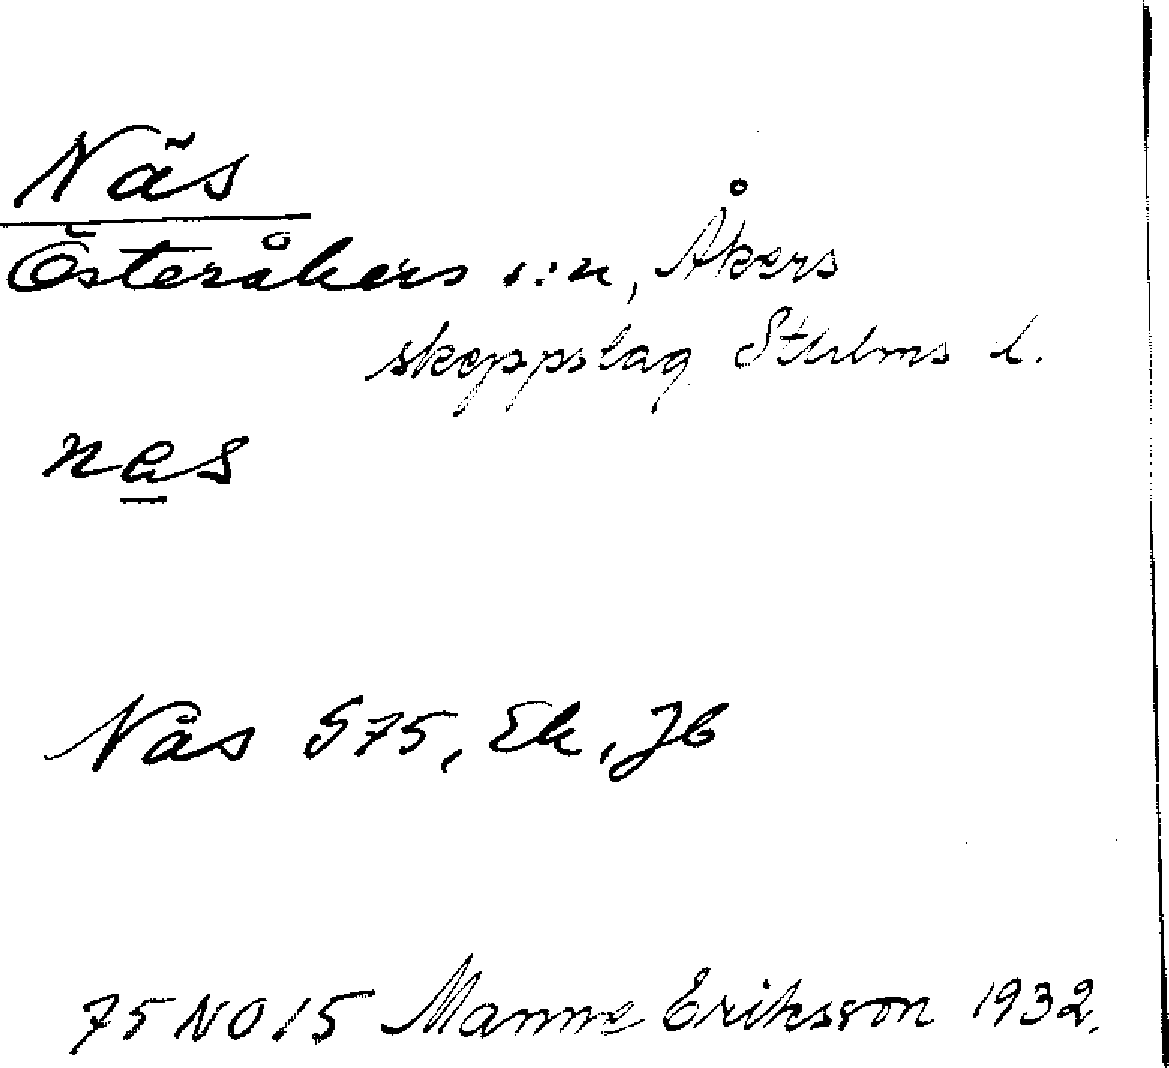 Näs
Österåkers s:n, Åkers
skeppslag Sthlms l.
nes
Näs G75, Ek, Jb
75 NO 15 Manne Eriksson 1932.